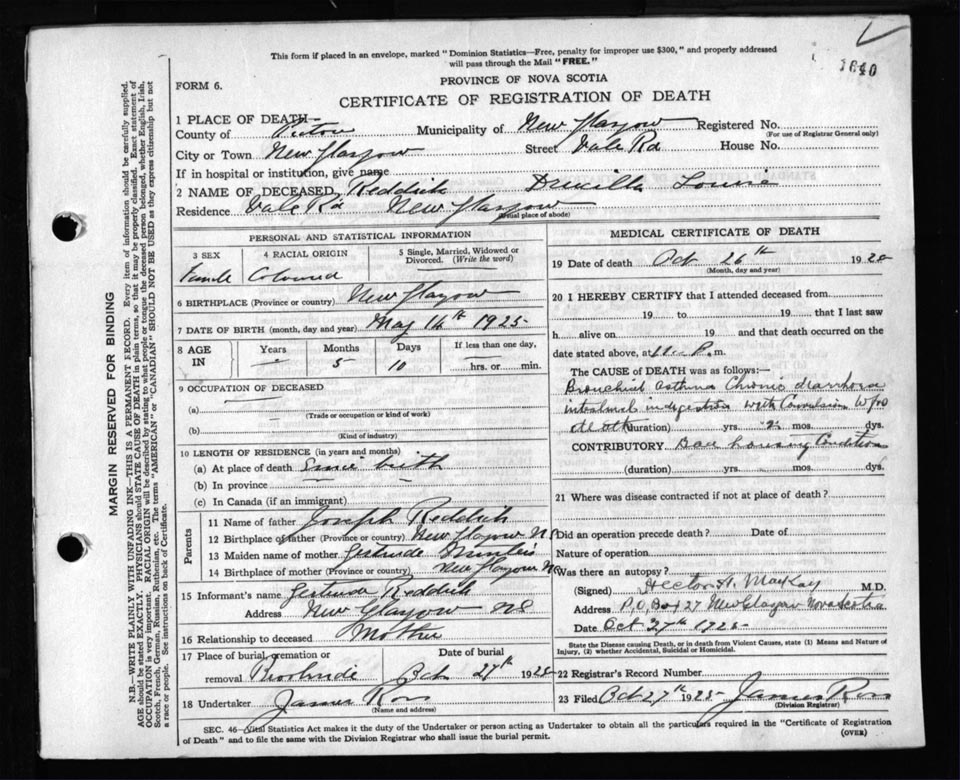 This form if placed in an envelope, marked "Dominion Statistics—Free, penalty for improper use $300," and properly addressed
will pass through the Mail "FREE."
1640
FORM 6.
PROVINCE OF NOVA SCOTIA
CERTIFICATE OF REGISTRATION OF DEATH
1 PLACE OF DEATH—
County of Pictou Municipality of New Glasgow Registered No.
(For use of Registrar General only)
City or Town New Glasgow Street Vale Rd House No.
If in hospital or institution, give name
2 NAME OF DECEASED Reddick Drucilla Louise
Residence Vale Rd New Glasgow
(Usual place of abode)
PERSONAL AND STATISTICAL INFORMATION
3 SEX 4 RACIAL ORIGIN 5 Single, Married, Widowed or Divorced. (Write the word)
Female Coloured
6 BIRTHPLACE (Province or country) New Glasgow
7 DATE OF BIRTH (month, day and year) May 16th 1925
8 AGE IN Years Months Days If less than one day,
— 5 10 hrs. or min.
9 OCCUPATION OF DECEASED
(a) —
(Trade or occupation or kind of work)
(b)
(Kind of industry)
10 LENGTH OF RESIDENCE (in years and months)
(a) At place of death Since birth
(b) In province
(c) In Canada (if an immigrant)
Parents
11 Name of father Joseph Reddick
12 Birthplace of father (Province or country) New Glasgow N.S
13 Maiden name of mother Gertrude
14 Birthplace of mother (Province or country) New Glasgow NS
15 Informant's name Gertrude Reddick
Address New Glasgow NS
16 Relationship to deceased Mother
17 Place of burial, cremation or Date of burial
removal Riverside Oct 27th 1925
18 Undertaker James Ross
(Name and address)
MEDICAL CERTIFICATE OF DEATH
19 Date of death Oct. 26th 1925
(Month, day and year)
20 I HEREBY CERTIFY that I attended deceased from
19 to 19 that I last saw
h alive on 19 and that death occurred on
date stated above, at P. m.
The CAUSE of DEATH was as follows:—
Bronchial asthma Chronic diarrhoea
intestinal indigestion with Convulsion
death (duration) yrs. 2 mos. dys.
CONTRIBUTORY Bad housing Condition
(duration) yrs. mos. dys.
21 Where was disease contracted if not at place of death?
Did an operation precede death? Date of
Nature of operation
Was there an autopsy?
(Signed) Hector H. MacKay M.D.
Address P.O. Box 27 New Glasgow Nova Scotia
Date Oct 27th 1925
State the Disease causing Death, or in death from Violent Causes, state (1) Means and Nature of
Injury, (2) whether Accidental, Suicidal or Homicidal.
22 Registrar's Record Number
23 Filed Oct 27th 1925 James Ross
(Division Registrar)
SEC. 46—Vital Statistics Act makes it the duty of the Undertaker or person acting as Undertaker to obtain all the particulars required in the "Certificate of Registration
of Death" and to file the same with the Division Registrar who shall issue the burial permit.
(OVER)
MARGIN RESERVED FOR BINDING
N.B.—WRITE PLAINLY WITH UNFADING INK—THIS IS A PERMANENT RECORD. Every item of information should be carefully supplied.
AGE should be stated EXACTLY. PHYSICIANS should STATE CAUSE OF DEATH in plain terms, so that it may be properly classified. Exact statement of
OCCUPATION is very important. RACIAL ORIGIN will be described by stating to what people or tongue the deceased person belonged, whether English, Irish,
Scotch, French, German, Russian, Ruthenian, etc. The terms "AMERICAN" or "CANADIAN" SHOULD NOT BE USED as they express citizenship but not
a race or people. See instructions on back of Certificate.